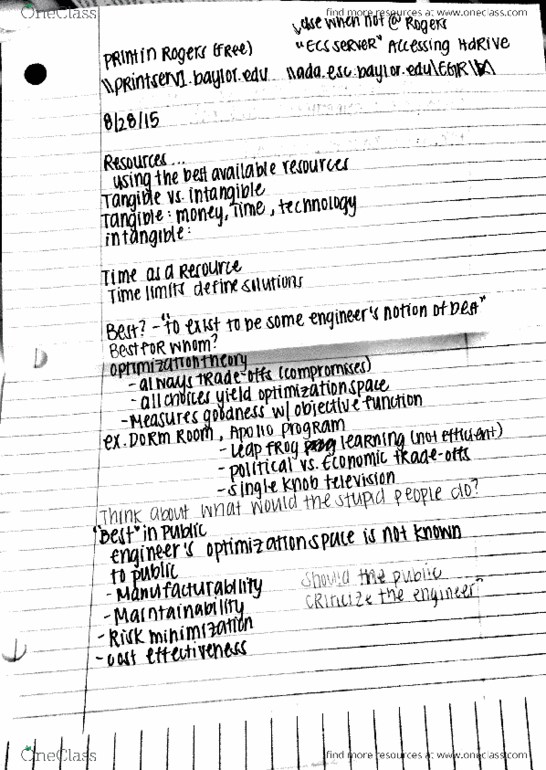 OneClass
find more resources at www.oneclass.com
use when not @ Rogers
Print in Rogers (Free)
"ECS SERVER" Accessing Hdrive
\\printserv1.baylor.edu
\\ada.esc.baylor.edu\EGR\
8/28/15
Resources...
using the best available resources
Tangible vs. intangible
Tangible: money, Time, technology
intangible:
Time as a Resource
Time limits define solutions
Best? - "to exist to be some engineer's notion of best"
Best for whom?
optimization theory
- always trade-offs (compromises)
- all choices yield optimization space
- Measures goodness w/ objective function
ex. Dorm Room, Apollo program
- Leap frog learning (not efficient)
- political vs. Economic trade-offs
- single knob television
Think about what would the stupid people do?
"Best" in public
engineer's optimization space is not known
to public
- Manufacturability
- Maintainability
- Risk minimization
- cost effectiveness
should the public
criticize the engineer"
OneClass
find more resources at www.oneclass.com